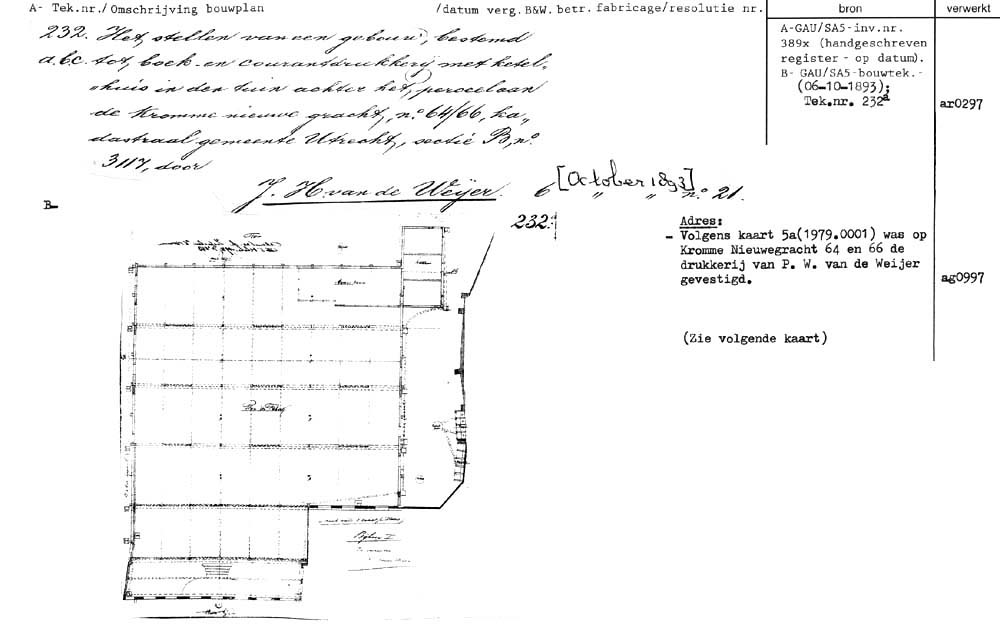 A- Tek.nr./Omschrijving bouwplan /datum verg.B&W.betr.fabricage/resolutie nr.
bron
verwerkt
232. Het stellen van een gebouw, bestemd
a.b.c. tot boek- en courantdrukkerij met ketel-
huis in den tuin achter het perceel aan
de Kromme nieuwe gracht, no 64/66, ka-
dastraal gemeente Utrecht, sectie B, no
3117, door
J. H. van de Weijer. 6 [October 1893] no. 21.
A-GAU/SA5-inv.nr.
389x (handgeschreven
register - op datum).
B- GAU/SA5-bouwtek.-
(06-10-1893);
Tek.nr. 232a
ar0297
B-
232.
Adres:
- Volgens kaart 5a(1979.0001) was op
Kromme Nieuwegracht 64 en 66 de
drukkerij van P. W. van de Weijer
gevestigd.
ag0997
(Zie volgende kaart)